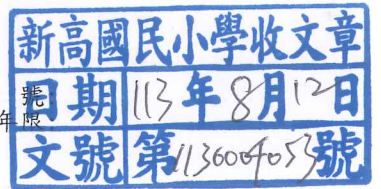 新高國民小學收文章
號:
年限
日期 113年8月12日
文號 第1136004053號